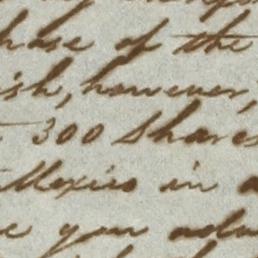 hase of the
ish, however,
300 Shares
Mexico in
your